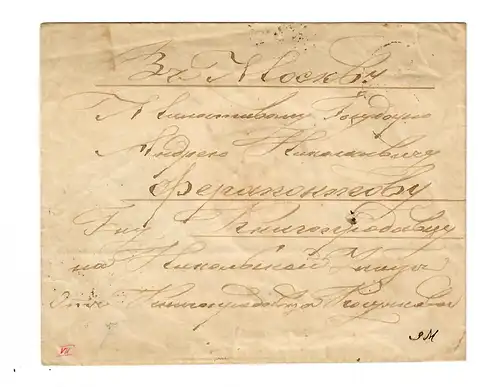 Въ Москву
Милостивому Государю
Андрею Николаевичу
Ферапонтову
Гну Книгопродавцу
на Никольской Улице
Книгопродавца
VII
9M